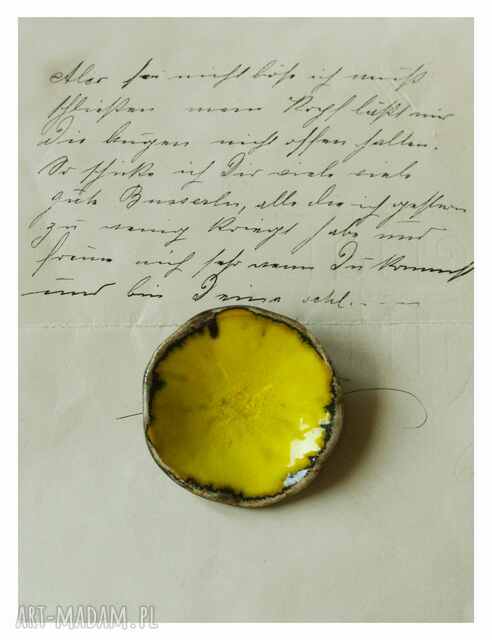 Aber sei nicht böse ich muß
schließen mein Kopf läßt mir
die Augen nicht offen halten.
So schicke ich Dir viele viele
gute Busserln, alle die ich gestern
zu wenig kriegt habe und
freue mich sehr wenn Du kommst
und bin Deine
ART-MADAM.PL